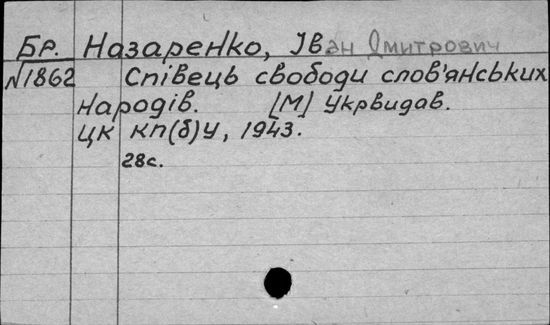 Бр. Назаренко, Іван Дмитрович
N1862 Співець свободи слов'янських
народів. [М] Укрвидав.
ЦК КП(б)У, 1943.
28с.